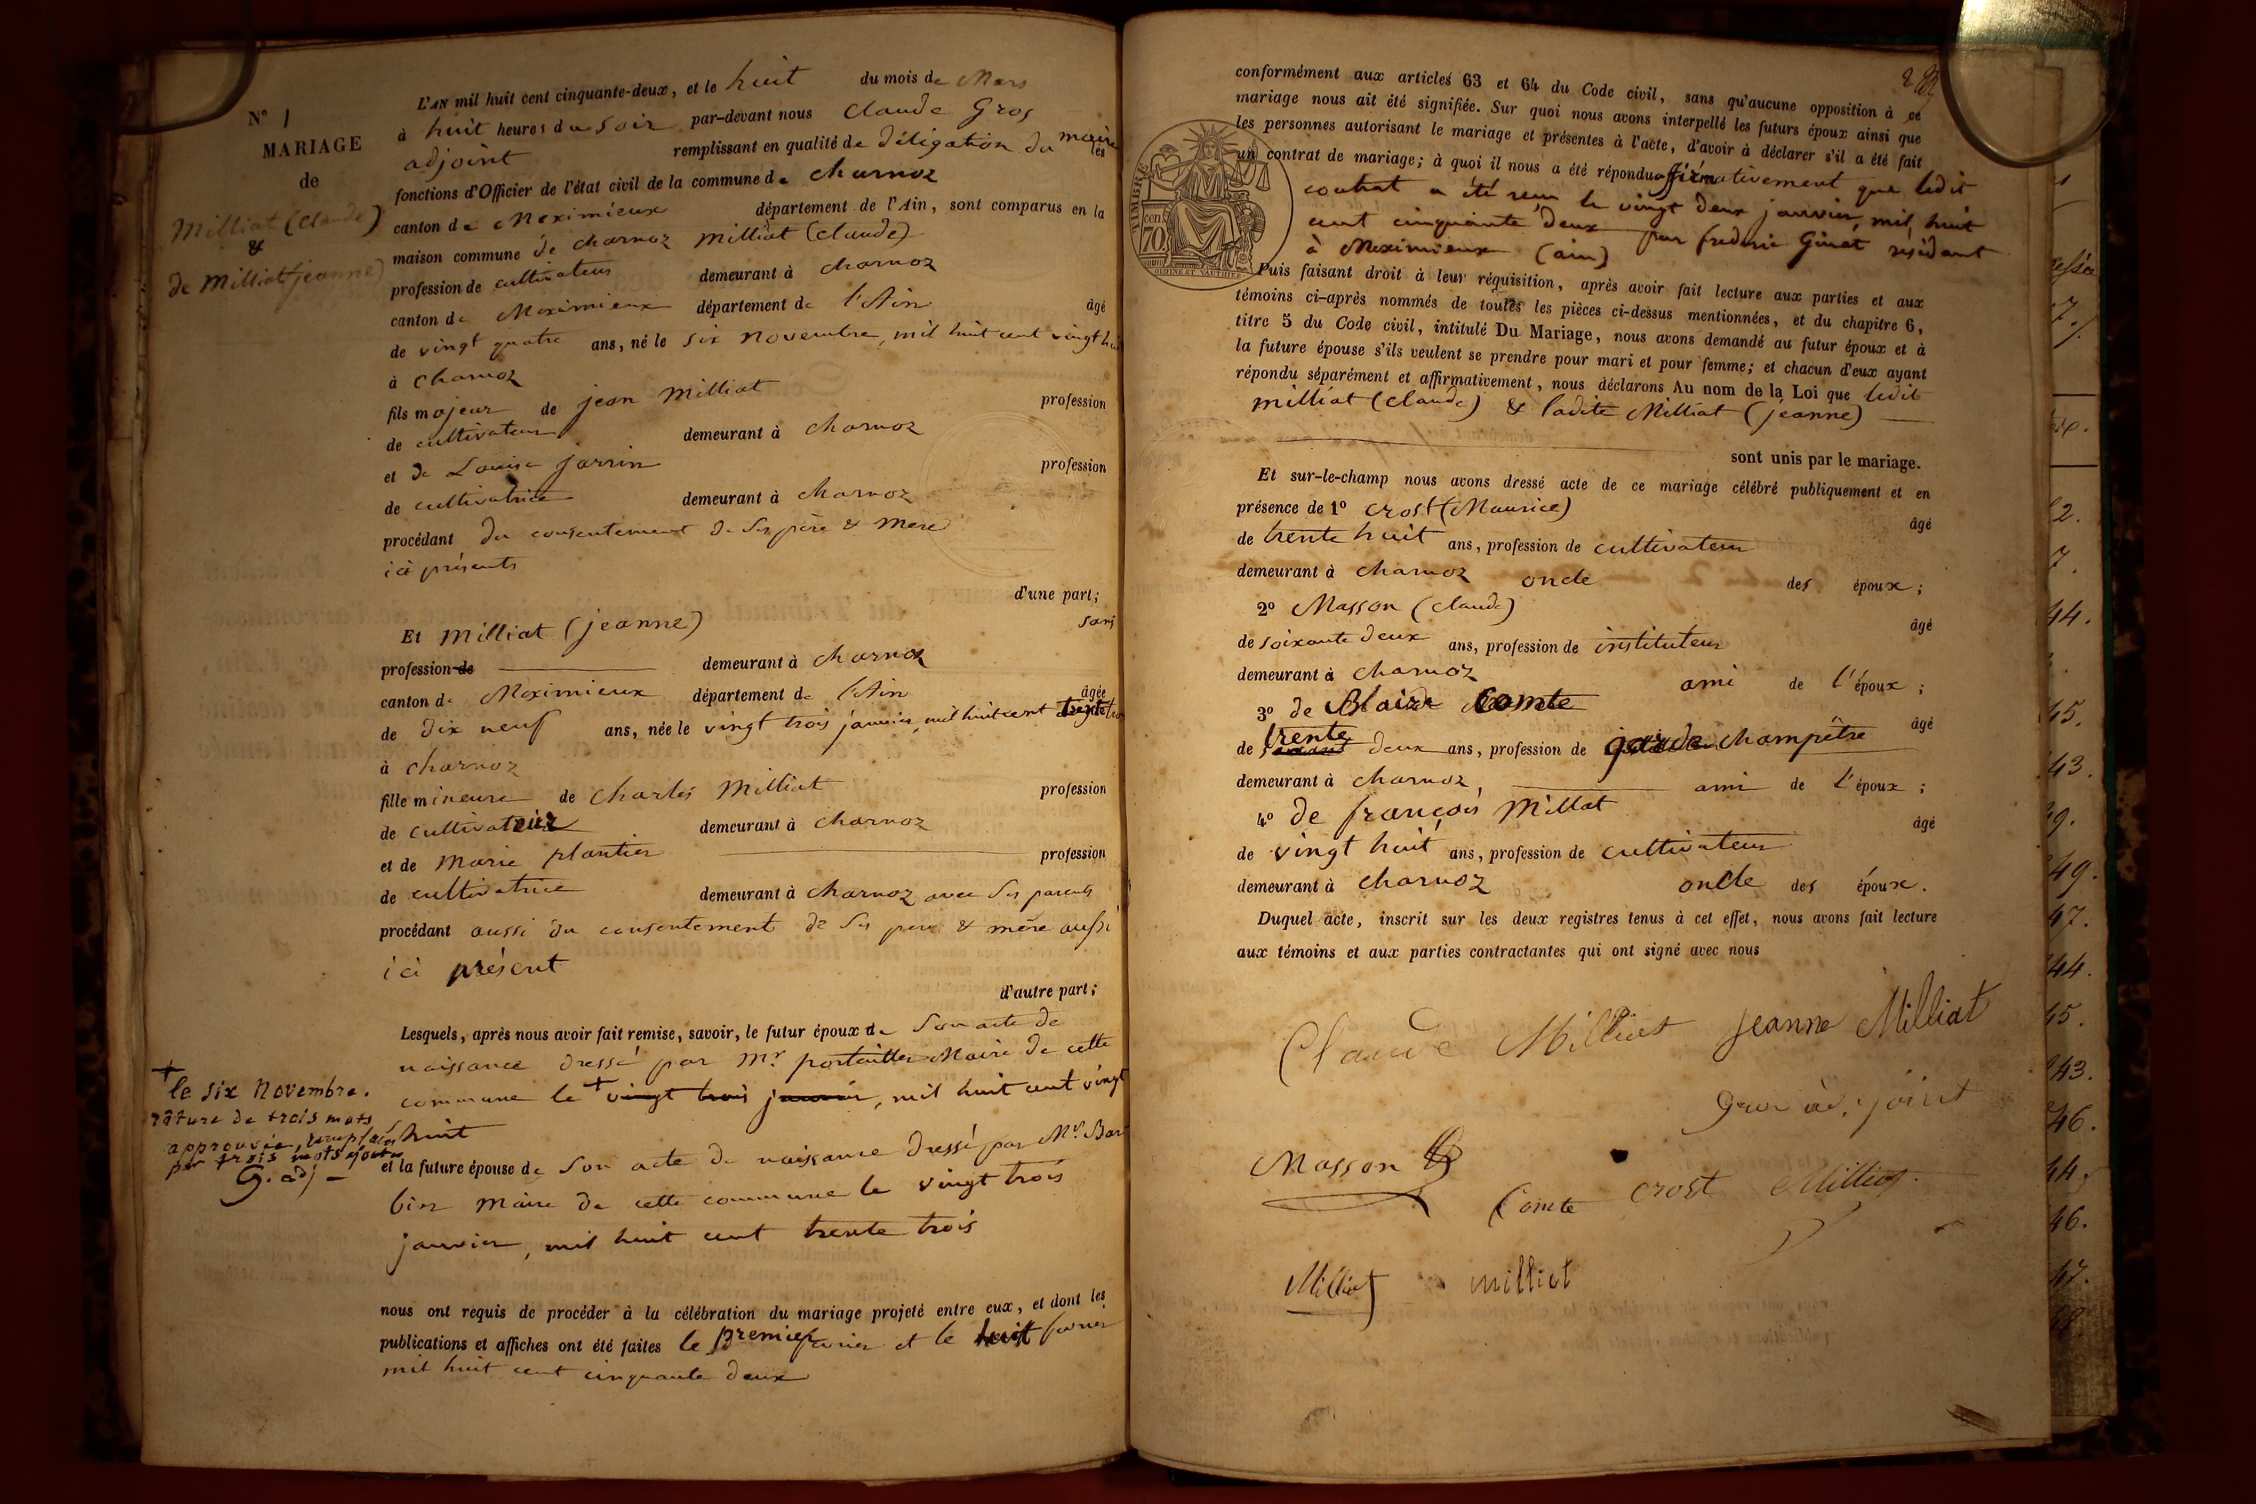 N° 1
MARIAGE
de
Milliat (Claude)
&
de Milliat (jeanne)
L'AN mil huit cent cinquante-deux, et le huit du mois de Mars
à huit heures du soir par-devant nous Claude Gros
adjoint remplissant en qualité de déligation du maire les
fonctions d'Officier de l'état civil de la commune de Charnoz
canton de Meximieux département de l'Ain, sont comparus en la
maison commune de charnoz Milliat (Claude)
profession de cultivateur demeurant à charnoz
canton de Meximieux département de l'Ain âgé
de vingt quatre ans, né le six novembre, mil huit cent vingt
à charnoz
fils majeur de jean Milliat profession
de cultivateur demeurant à charnoz
et de Louise Jarrin profession
de cultivatrice demeurant à charnoz
procédant du consentement de ses père & mere
ici présents
d'une part;
Et Milliat (jeanne) sans
profession de demeurant à charnoz
canton de Meximieux département de l'Ain âgée
de dix neuf ans, née le vingt trois janvier, mil huit cent trente
à charnoz
fille mineure de Charles Milliat profession
de cultivateur demeurant à charnoz
et de Marie plantier profession
de cultivatrice demeurant à charnoz avec ses parents
procédant aussi du consentement de ses père & mère aussi
ici présent
d'autre part;
Lesquels, après nous avoir fait remise, savoir, le futur époux de son acte de
naissance dressé par Mr. portaillier Maire de cette
commune le + vingt trois janvier, mil huit cent vingt
huit
+ le six Novembre.
râture de trois mots
approuvée, remplacés
par trois mots ajoutés
G. adj
et la future épouse de son acte de naissance dressé par Mr. Bar
bier maire de cette commune le vingt trois
janvier, mil huit cent trente trois
nous ont requis de procéder à la célébration du mariage projeté entre eux, et dont les
publications et affiches ont été faites le premier fevrier et le huit fevrier
mil huit cent cinquante deux
conformément aux articles 63 et 64 du Code civil, sans qu'aucune opposition à ce
mariage nous ait été signifiée. Sur quoi nous avons interpellé les futurs époux ainsi que
les personnes autorisant le mariage et présentes à l'acte, d'avoir à déclarer s'il a été fait
un contrat de mariage; à quoi il nous a été répondu affirmativement que ledit
contrat a été reçu le vingt deux janvier, mil huit
cent cinquante deux par frederic Ginet résidant
à Meximieux (ain)
TIMBRE
70
Puis faisant droit à leur réquisition, après avoir fait lecture aux parties et aux
témoins ci-après nommés de toutes les pièces ci-dessus mentionnées, et du chapitre 6,
titre 5 du Code civil, intitulé Du Mariage, nous avons demandé au futur époux et à
la future épouse s'ils veulent se prendre pour mari et pour femme; et chacun d'eux ayant
répondu séparément et affirmativement, nous déclarons Au nom de la Loi que ledit
Milliat (Claude) & ladite Milliat (jeanne)
sont unis par le mariage.
Et sur-le-champ nous avons dressé acte de ce mariage célébré publiquement et en
présence de 1° Crost (Maurice) âgé
de trente huit ans, profession de cultivateur
demeurant à charnoz oncle des époux;
2° Masson (Claude) âgé
de soixante deux ans, profession de instituteur
demeurant à charnoz ami de l'époux;
3° de Blaise Comte âgé
de trente deux ans, profession de garde champêtre
demeurant à charnoz ami de l'époux;
4° de françois Millat âgé
de vingt huit ans, profession de cultivateur
demeurant à charnoz oncle des époux.
Duquel acte, inscrit sur les deux registres tenus à cet effet, nous avons fait lecture
aux témoins et aux parties contractantes qui ont signé avec nous
Claude Milliat Jeanne Milliat
Gros adjoint
Masson
Comte Crost Milliat
Milliat milliat